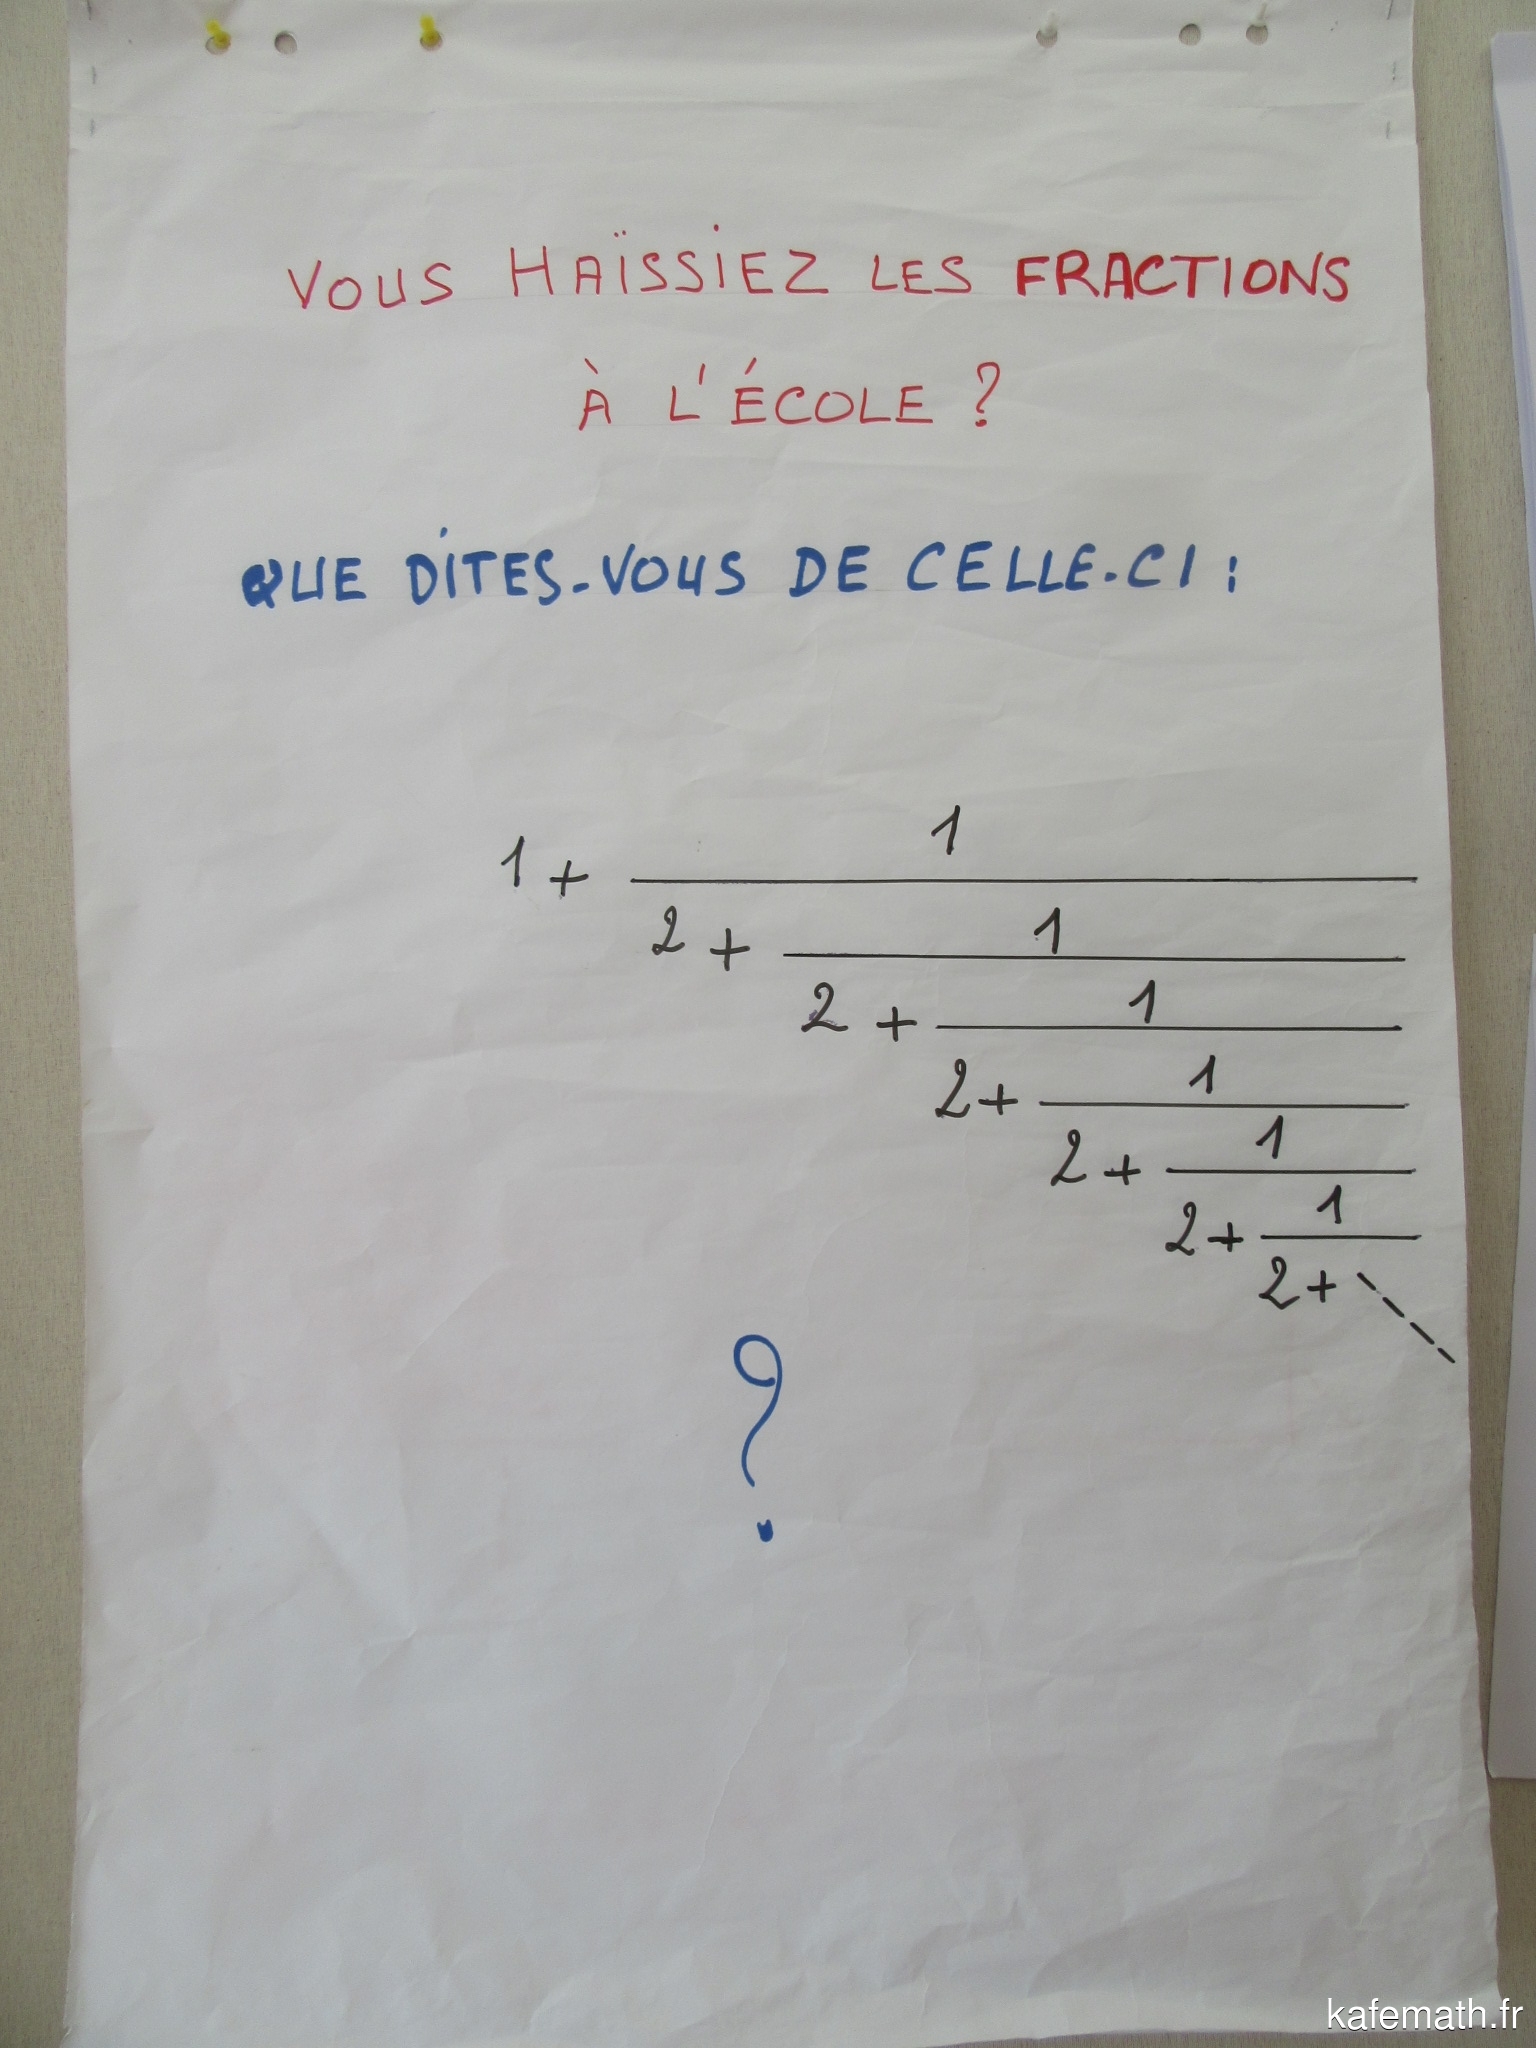 VOUS HAÏSSIEZ LES FRACTIONS
À L'ÉCOLE ?
QUE DITES-VOUS DE CELLE-CI :
1 + 1
2 + 1
2 + 1
2 + 1
2 + 1
2 + 1
2 +
?
kafemath.fr